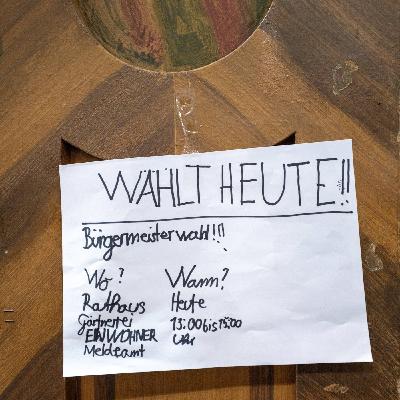 WÄHLT HEUTE!!
Bürgermeisterwahl!!!
Wo? Wann?
Rathaus Heute
Gärtnerei 13:00 bis 15:00
EINWOHNER Uhr
Meldeamt